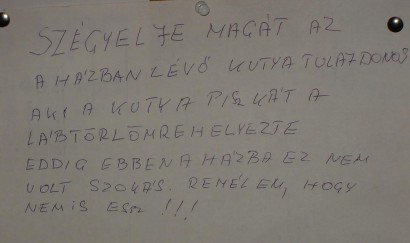 SZÉGYELJE MAGÁT AZ
A HÁZBAN LÉVŐ KUTYATULAJDONOS
AKI A KUTYA PISZKÁT A
LÁBTÖRLŐMRE HELYEZTE
EDDIG EBBEN A HÁZBA EZ NEM
VOLT SZOKÁS. REMÉLEM, HOGY
NEM IS ESZ !!!